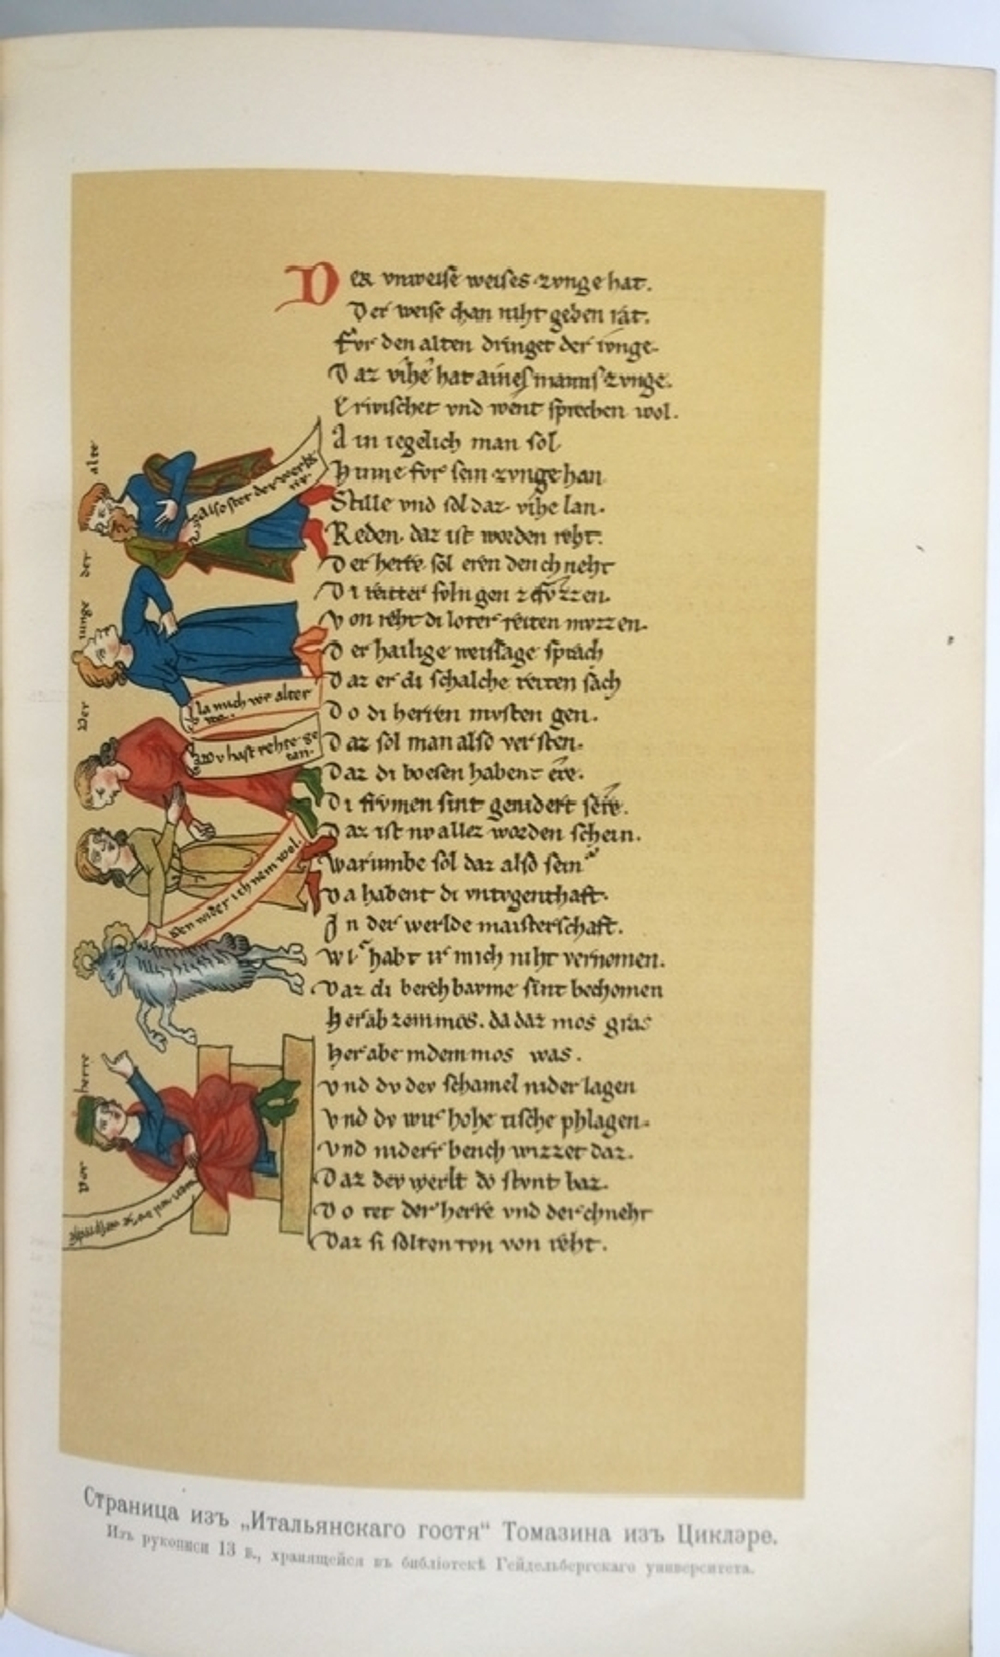 Der vnweise weises zvnge hat.
Der weise chan niht geben rat.
Fvr den alten dringet der ivnge.
Daz vihe hat aines manns zvnge.
Erwischet vnd went sprechen wol.
Ain iegelich man sol
fvr sein zvnge han
Stille vnd sol daz vihe lan.
Reden. daz ist worden reht.
Der herre sol eren den chneht
Di reitter soln gen ze fvzzen.
Von reht di loter reiten mvzzen.
Der hailige weissage sprach
Daz er di schalche reiten sach
Do di herren mvsten gen.
Daz sol man also versten.
Daz di boesen habent ere.
Di frvmen sint genidert sere.
Daz ist nv allez worden schein.
Warumbe sol daz also sein
Da habent di vntvgenthaft.
In der werlde maisterschaft.
Wi habt ir mich niht vernomen.
Daz di berch bavme sint bechomen
Her ab zem mos. da daz mos gras
her abe in dem mos was.
Vnd dv dev schamel nider lagen
Vnd dv wir hohe tische phlagen.
Vnd niderr bench wizzet daz.
Daz dev werlt do stvnt baz.
Do tet der herre vnd der chneht
Daz si solten tvn von reht.
alte
der
iunge
Der
Also stet der werlt
La mich
alter
Dv hast rehte getan.
Den wider ich nem wol.
herre
Der
Страница изъ „Итальянскаго гостя“ Томазина изъ Циклэре.
Изъ рукописи 13 в., хранящейся въ библіотекѣ Гейдельбергскаго университета.